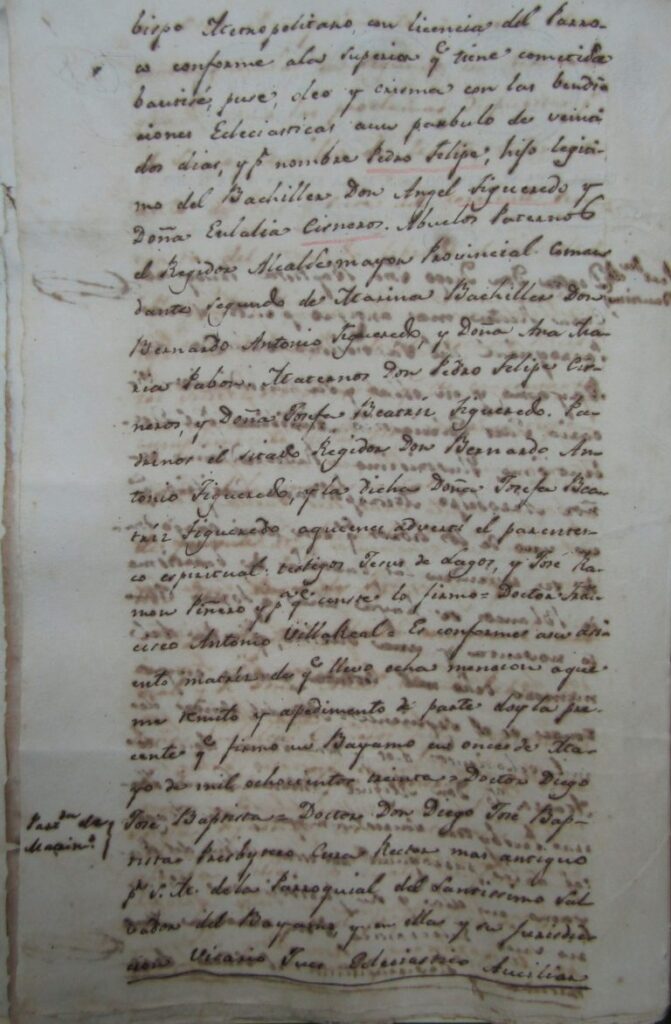 bispo Metropolitano, con licencia del Parro-
co conforme ala superior q.e tiene cometida
bautisé, puse, oleo y crisma con las bendi-
ciones Eclesiasticas aun parbulo de veinti
dos dias, y p.r nombre Pedro Felipe, hijo legiti-
mo del Bachiller Don Angel Figueredo y
Doña Eulalia Cisneros. Abuelos Paternos
el Regidor Alcalde mayor Provincial Coman
dante segundo de Marina Bachiller Don
Bernardo Antonio Figueredo, y Doña Ana Ma-
ria Pabon. Maternos Don Pedro Felipe Cis-
neros, y Doña Josefa Beatriz Figueredo. Pa-
drinos el sitado Regidor Don Bernardo An-
tonio Figueredo, y la dicha Doña Josefa Bea-
triz Figueredo aquienes advertí el parentes-
co espiritual. testigos Jesus de Lagos, y José Ra-
mon Piñero y p.a q.e conste lo firmo = Doctor Fran
cisco Antonio Villareal = Es conforme asu asi
ento matriz de q.e llevo echa mencion aque
me remito y apedimento de parte doy la pre-
cente q.e firmo en Bayamo en once de Ma-
yo de mil ochocientos treinta = Doctor Diego
José Baptista = Doctor Don Diego José Bap-
tista Presbytero Cura Rector mas antiguo
p.r S. M. de la Parroquial del Santissimo Sal
vador del Bayamo, y en ella y su jurisdic
cion Vicario Juez Eclesiastico Auxiliar
Part.da de
Matrim.o